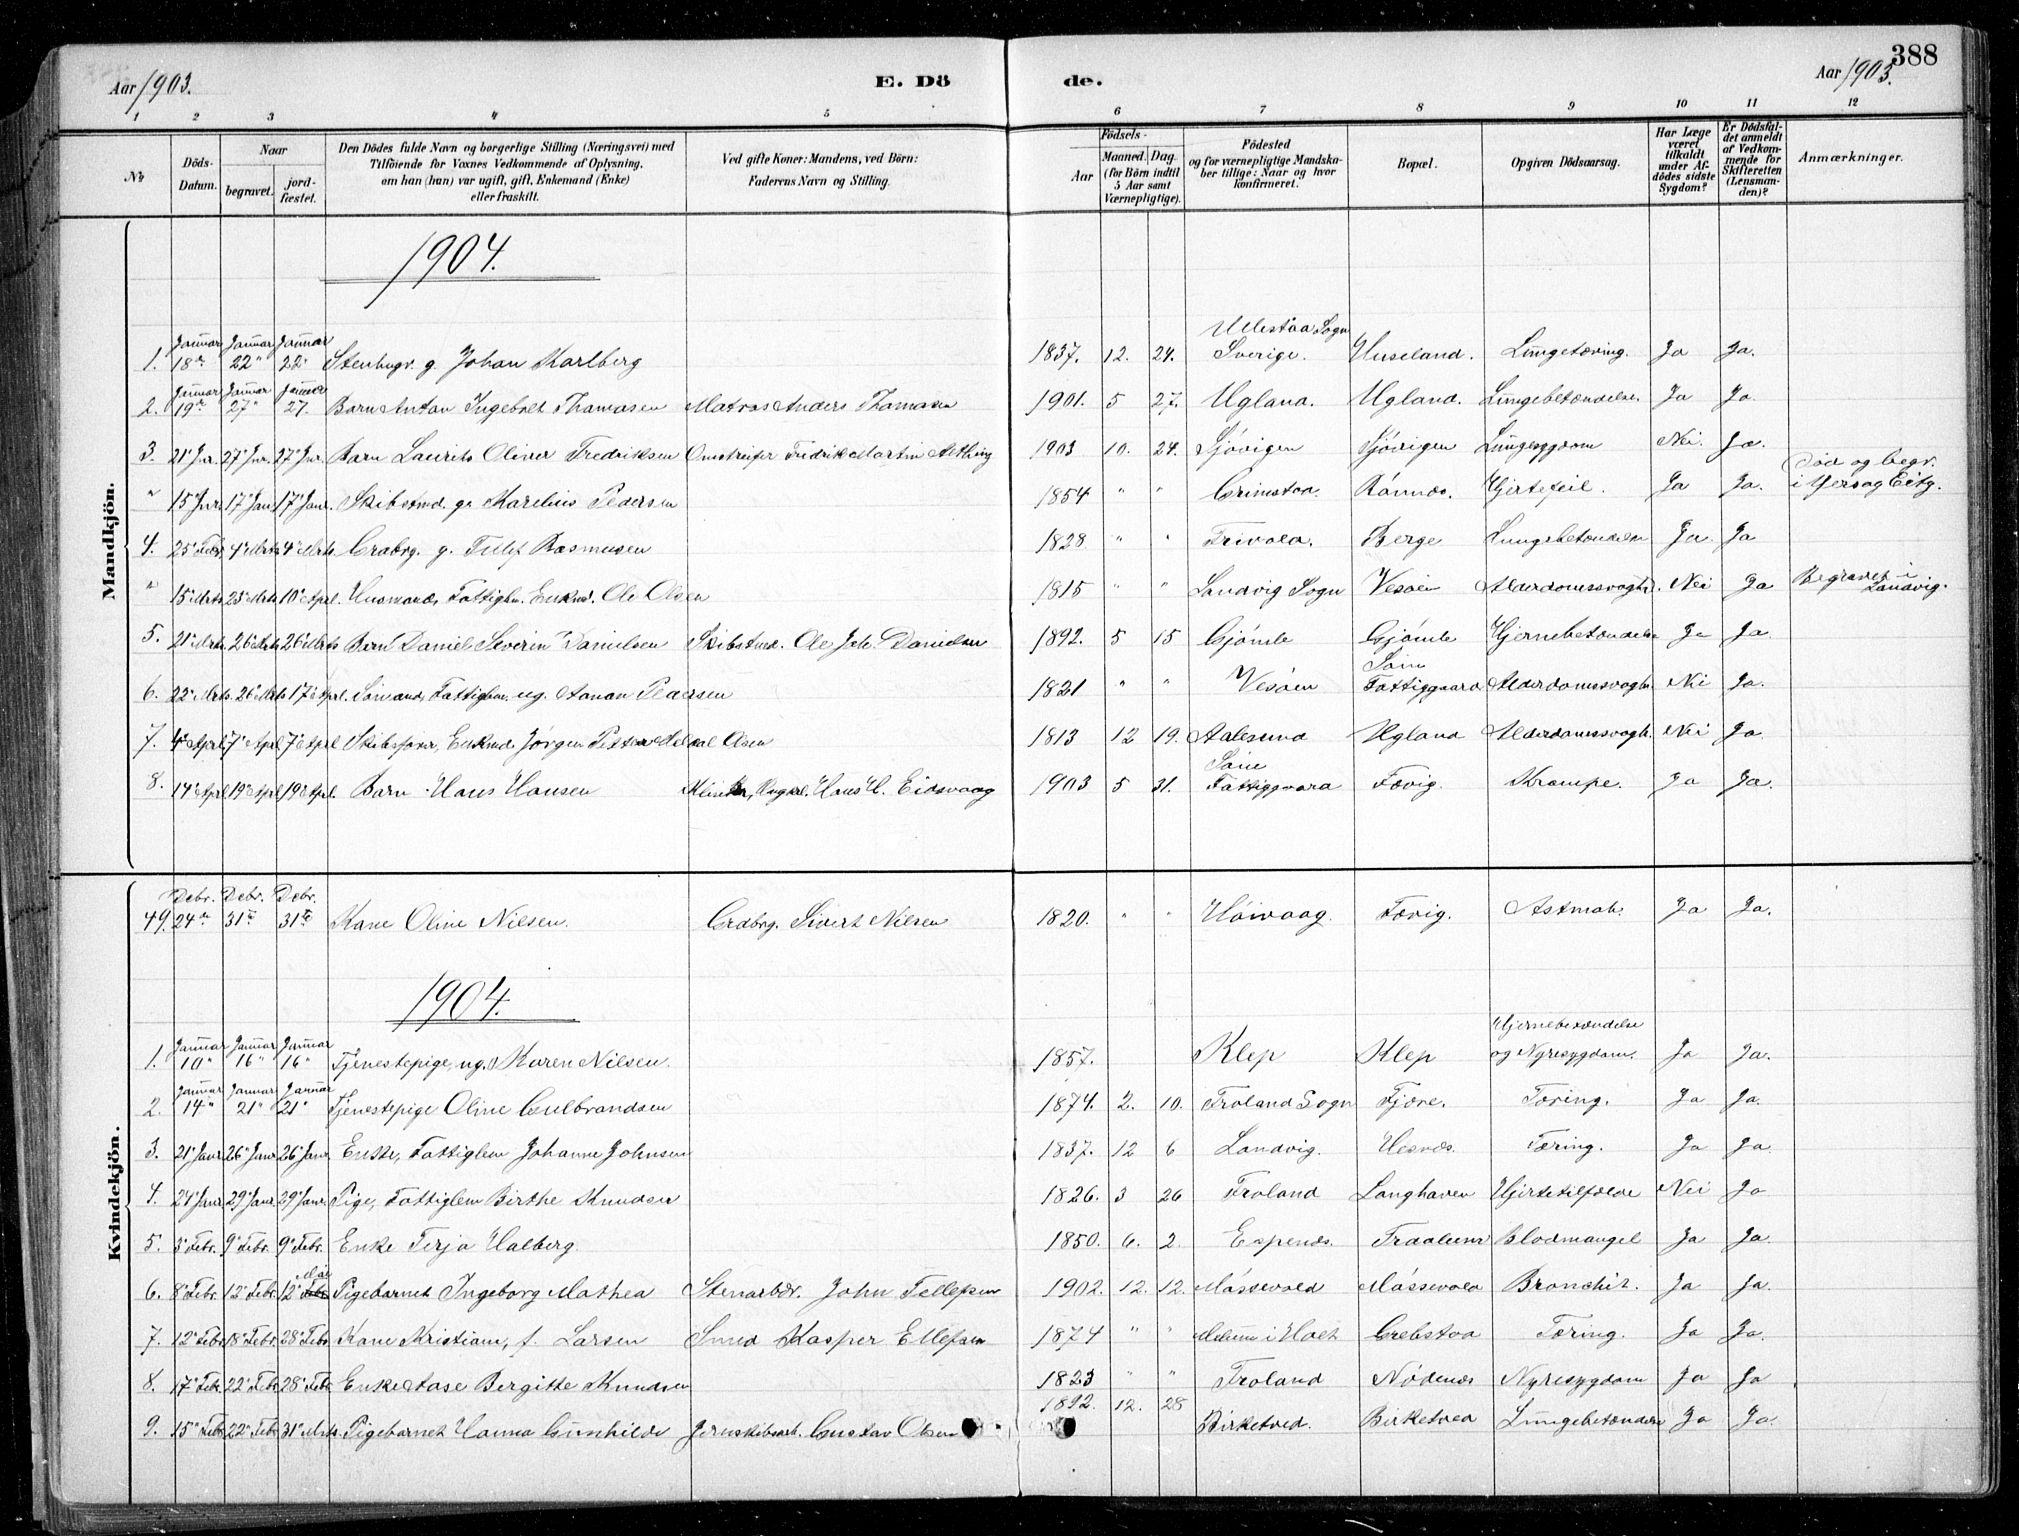 388
Aar 1903.
E. Dö de.
Aar 1903.
1 2 3 4 5 6 7 8 9 10 11 12
No
Döds-Datum.
Naar
begravet.
jord-fæstet.
Den Dödes fulde Navn og borgerlige Stilling (Næringsvei) med
Tilföiende for Voxnes Vedkommende af Oplysning,
om han (hun) var ugift, gift, Enkemand (Enke)
eller fraskilt.
Ved gifte Koner: Mandens, ved Börn:
Faderens Navn og Stilling.
Födsels-
Aar
Maaned. Dag.
(for Börn indtil
5 Aar samt
Værnepligtige).
Födested
og for værnepligtige Mandska-
ber tillige: Naar og hvor
konfirmeret.
Bopæl.
Opgiven Dödsaarsag.
Har Læge
været
tilkaldt
under Af-
dödes sidste
Sygdom?
Er Dödsfal-
det anmeldt
af Vedkom-
mende for
Skifteretten
(Lensman-
den)?
Anmærkninger.
Mandkjön.
1904.
1. Januar 18de Januar 22" Januar 22" Stenhugr. g. Johan Karlberg 1837. 12. 24. Ullestaa Sogn Sverige. Huseland. Lungetæring. Ja Ja.
2. Januar 19de Januar 27" Januar 27. Barn Anton Ingebolt Thomasen Matros Anders Thomasen 1901. 5 27. Ugland. Ugland. Lungebetændelse. Ja Ja.
3. 21" Jnr. 27" Jnr. 27" Jnr. Barn Laurits Oliver Fredriksen Omstreifer Fredrik Martin 1903 10. 24. Sjövigen Sjövigen Lungesygdom Nei. Ja.
" 15" Jnr. 17" Jan 17" Janr. Skibstmd. g. Karelius Pedersen 1854 " " Grimstad. Rönnes. Hjertefeil. Ja Ja. Död og begr. i
4. 25" Febr 4" Mrts 4" Mrts Grdbrg. g. Tellef Rasmusen 1828 " " Trivold. Berge Lungebetændelse Ja. Ja
" 15" Mrts 23" Mrts 10" Apl. Husmand, Fattiglm. Enkmd. Ole Olsen 1815 " " Landvig Sogn Vesöen Alderdomssvagh. Nei Ja Begravet i Landvig.
5. 21" Mrts 26" Mrts 26" Mrts Barn Daniel Severin Danielsen Skibstmd. Ole Joh. Danielsen 1892. 5 15 Gjömle Gjömle Hjernebetændelse Ja Ja
6. 22" Mrts. 26" Mrts 17" Apl. Sömand, Fattiglem. ug. Aanon Pedersen 1821 " " Vesöen Söm Fattiggaard Alderdomssvagh. Nei Ja.
7. 4" April 7" April 7" April Skibsförer, Enkmd. Jörgen Petter Olsen 1813 12 19. Aalesund Ugland Alderdomssvagh. Nei Ja.
8. 14" April 19" April 19" April. Barn Hans Hansen Hans H. Eidsvaag 1903 5 31. Söm Fattiggaard Fevig. Krampe. Ja Ja.
Kvindekjön.
49. Debr. 24de Debr. 31te Debr. 31te Kone Oline Nilsen. Grdbrg. Sivert Nilsen 1820. " " Höivaag. Fævig. Astmah. Ja Ja.
1904.
1. Januar 10" Januar 16" Januar 16" Tjenestepige, ug. Karen Nilsen. 1857. Klep Klep Hjernebetændelse og Nyresygdom. Ja Ja.
2. Januar 14" Januar 21" Januar 21" Tjenestepige Oline Gulbrandsen 1874. 2. 10. Froland Sogn Fjære. Tæring. Ja Ja.
3. 21" Janr 26" Janr 26" Janr. Enke, Fattiglem Johanne Johnsen 1837. 12 6 Landvig. Hesnæs. Tæring. Ja Ja
4. 24" Janr 29" Janr. 29" Janr. Pige, Fattiglem Birthe Knudsen 1826. 3 26 Froland Langhaven Hjertetilfælde Nei Ja
5. 3" Febr. 9" Febr. 9" Febr. Enke Terja Halberg. 1850. 6. 2. Espenes. Blodmangel Ja Ja.
6. 8" Febr. 12" Febr. 12" Mar Pigebarnet Ingeborg Mathea Stenarbdr. John Tellefsen 1902. 12. 12. Mössevold Mössevold Bronchit. Ja Ja.
7. 12" Febr 18" Febr. 28" Febr. Kone Kristiane, f. Larsen Smed Kasper Ellefsen 1874 " " i Holt Grebstad Tæring. Ja Ja.
8. 17" Febr. 22" Febr. 28" Febr. Enke Aase Bergitte Knudsen 1823 " " Froland Nødenes Nyresygdom Ja Ja
9. 15" Febr 22" Febr. 31" Mrts. Pigebarnet Hanna Gunhilde Jernskibsarb. Gustav Olsen 1892. 12. 28 Birketved. Birketved Lungebetændelse Ja Ja.